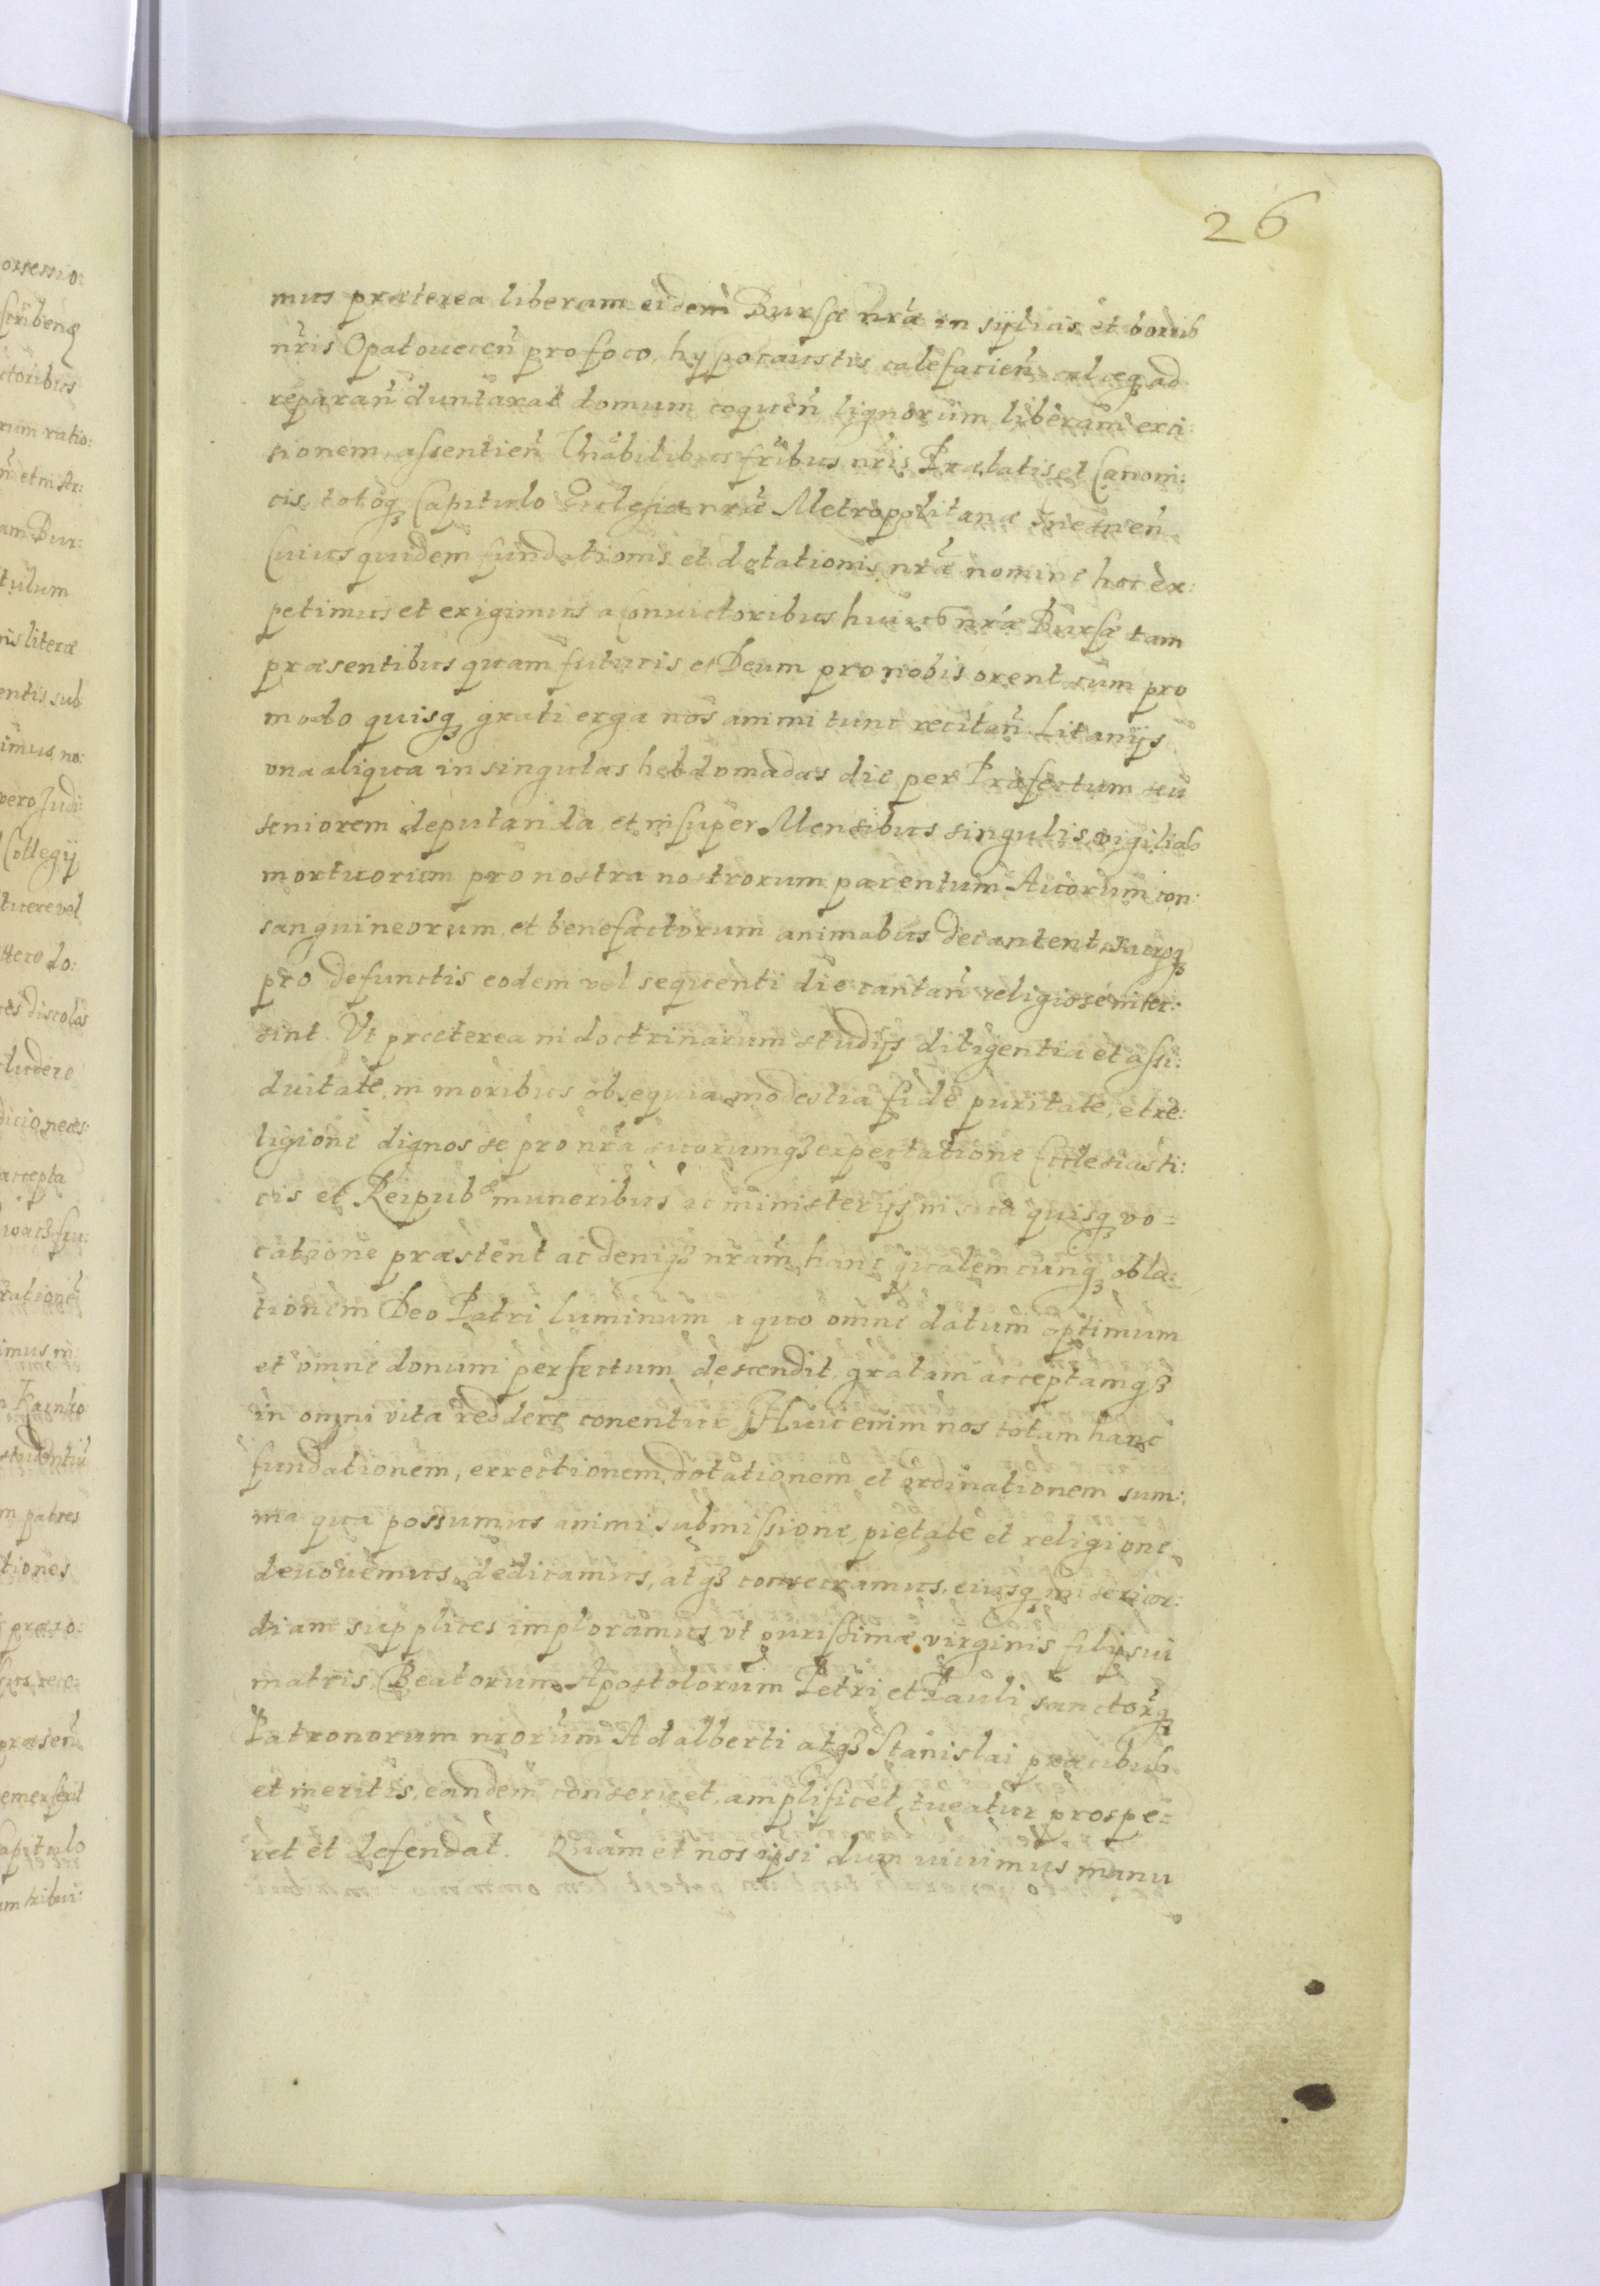 26
mus præterea liberam eidem Bursæ nr̃æ in sylvis et borrib
nr̃is Opatovecen̄ pro foco, hypocaustis calefacien̄ calceq3 ad
reparan̄ duntaxat domum coquen̄ lignorum liberam exci:
sionem, assentien̄ Vn̄abilibus fr̄ibus nr̃is Prælatis et Canoni:
cis totoq3 Capitulo Ecclesiæ nræ Metropolitanæ Gnesnen̄
Cuius quidem fundationis et dotationis nræ nomine hoc ex:
petimus et exigimus a Convictoribus huius nræ Bursæ tam
præsentibus quam futuris et Deum pro nobis orent cum pro
modo quisq3 grati erga nos animi tunc recitan̄ Litanijs
vna aliqua in singulas hebdomadas die per Præfectum seu
seniorem deputanda et insuper Mensibus singulis vigilias
mortuorum pro nostra nostrorum parentum Auorum con:
sanguineorum et benefactorum animabus decantent, sacroq3
pro defunctis eodem vel sequenti die cantan̄ religiose inter:
sint. Vt præterea in doctrinarum studijs diligentia et assi:
duitate, in moribus obsequia modestia fide puritate, et re:
ligione dignos se pro nr̃a suorumq3 expectatione Ecclesiasti:
cis et Reipub muneribus ac ministerijs in sua quisq3 vo=
catione præstent ac deniq3 nram hanc qualemcunq3 obla=
tionem Deo Patri luminum a quo omne datum optimum
et omne donum perfectum descendit, gratam acceptamq3
in omni vita reddere conentur Huic enim nos totam hanc
fundationem, errectionem, dotationem et ordinationem sum:
ma qua possumus animi submissione, pietate et religione
devovemus, dedicamus, atq3 consecramus, eiusq3 misericor:
diam supplices imploramus vt purissimæ virginis filij sui
matris, Beatorum Apostolorum Petri et Pauli sanctorq3
Patronorum nrorum Adalberti atq3 Stanislai præcibus
et meritis, eandem conservet, amplificet, tueatur prospe=
ret et defendat. Quam et nos ipsi dum vivimus manu